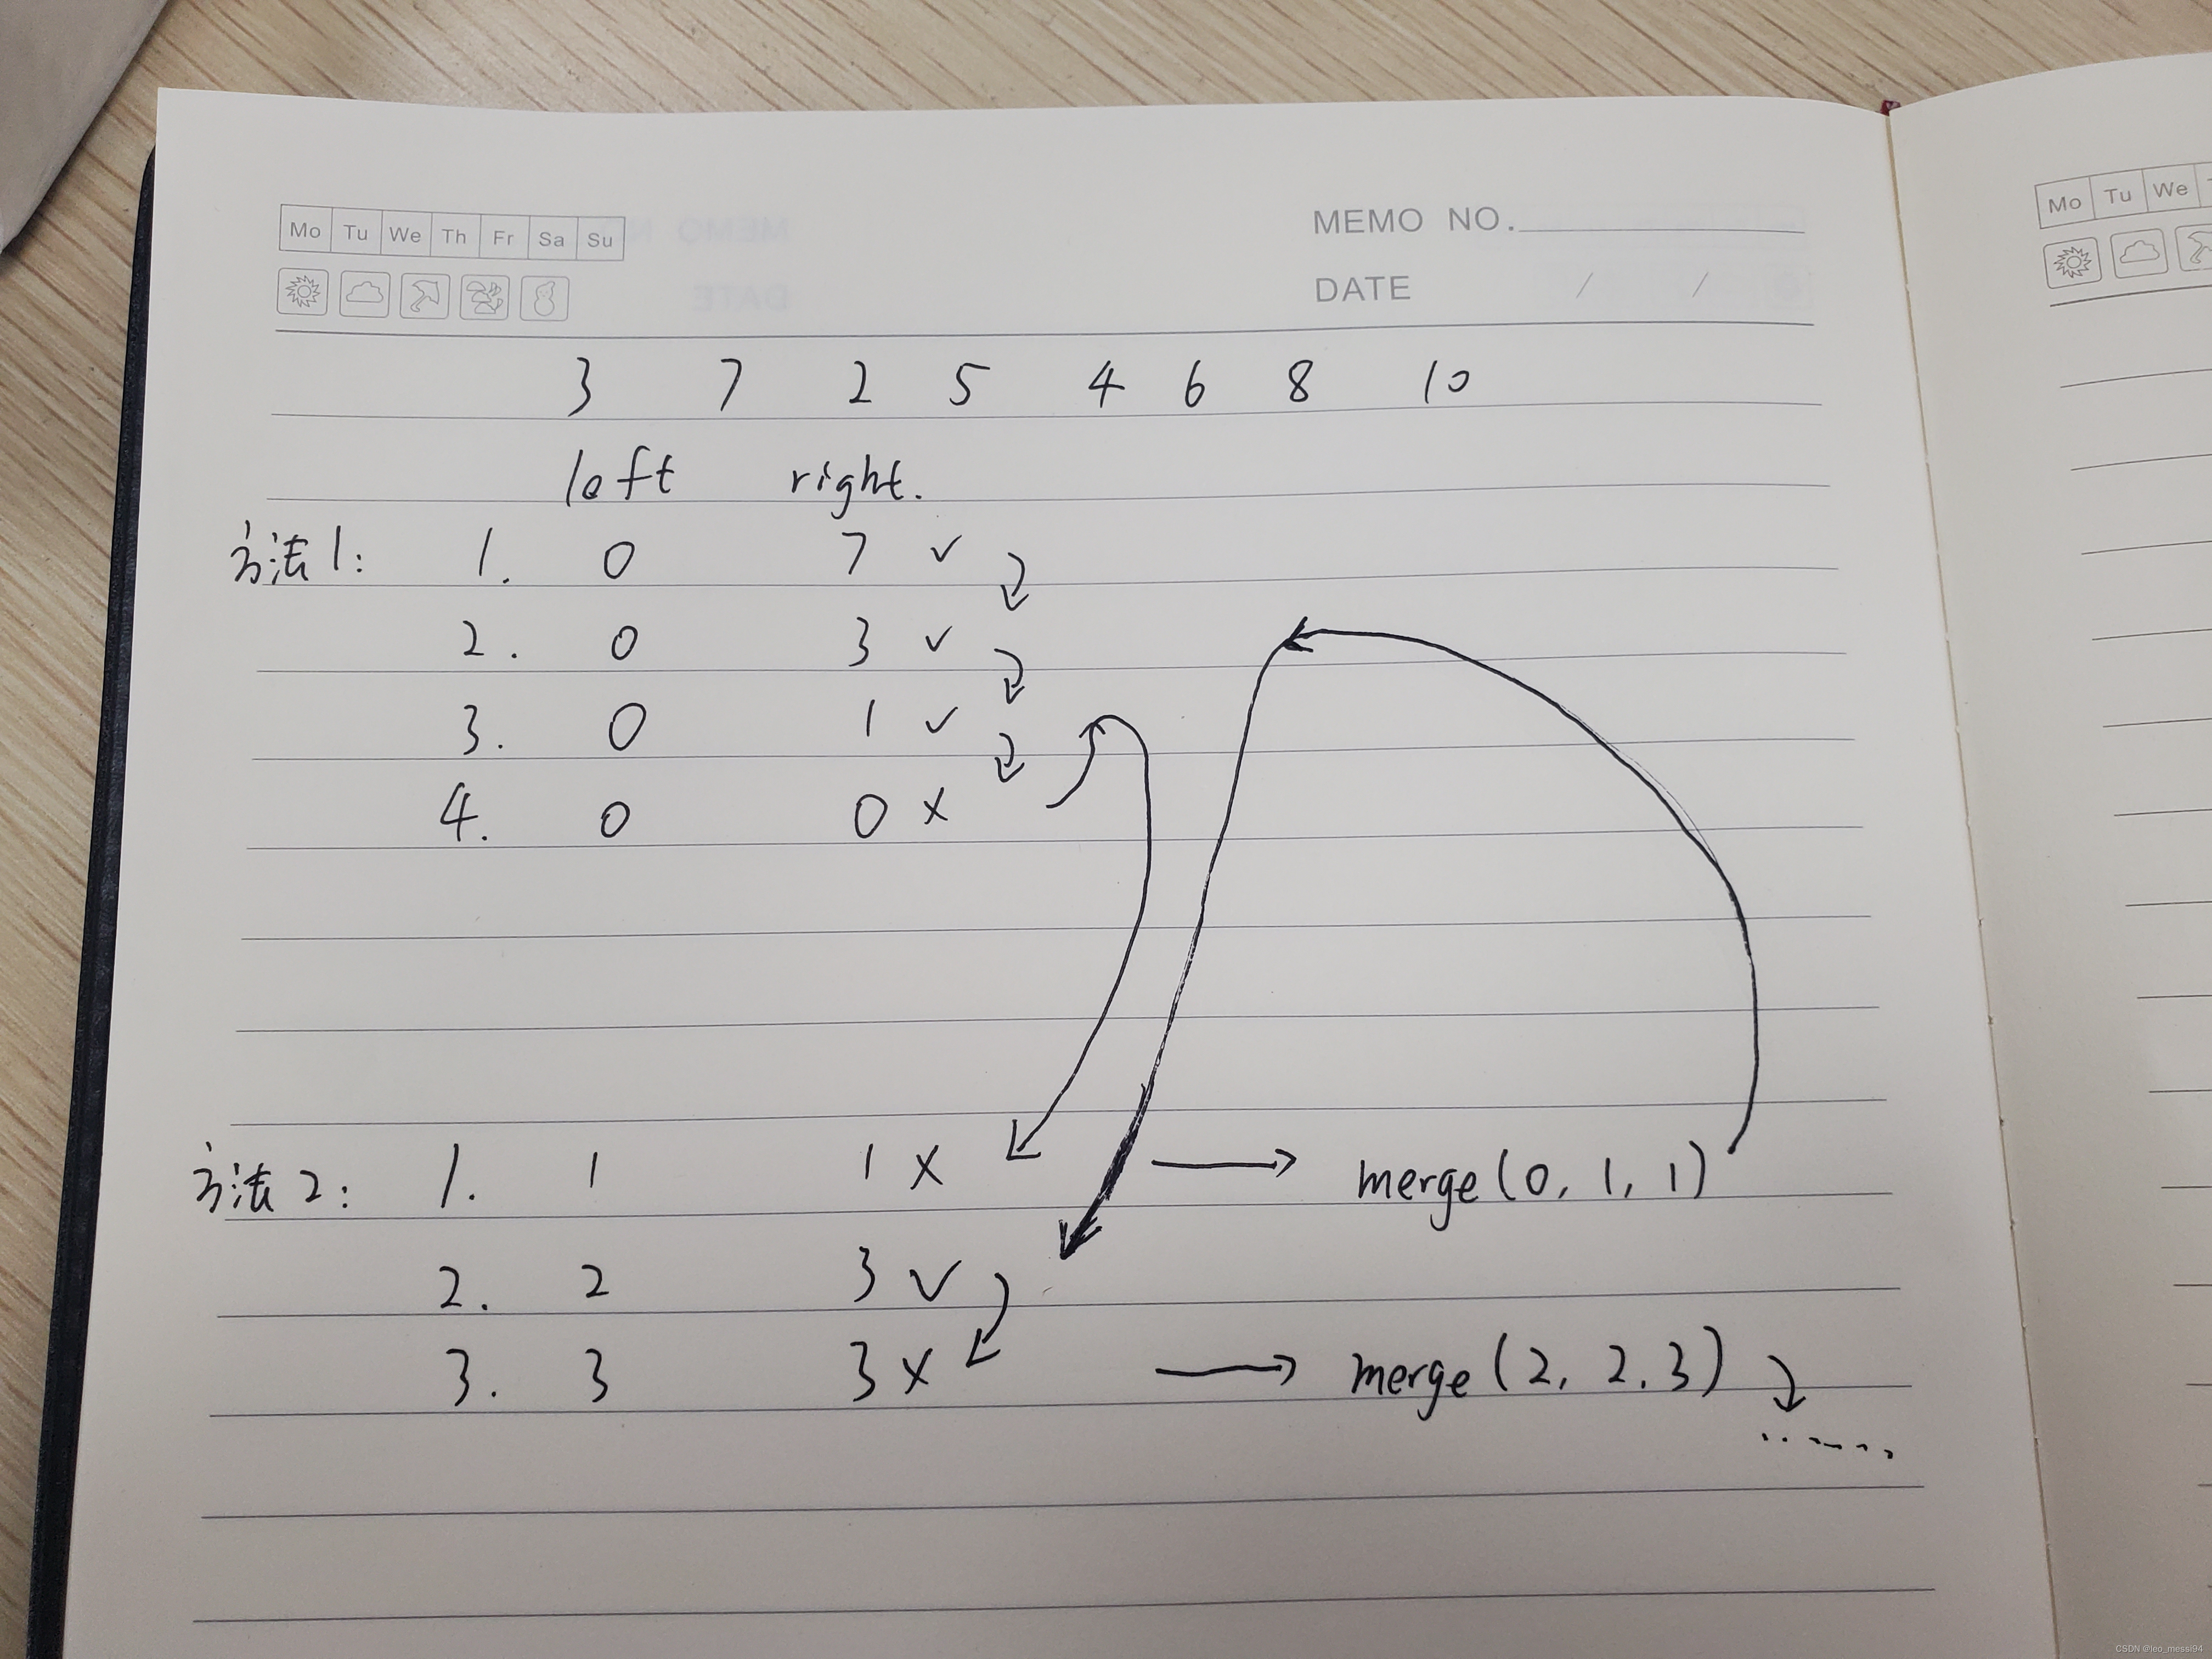 Mo Tu We Th Fr Sa Su
MEMO NO.
DATE / /
Mo Tu We
3 7 2 5 4 6 8 10
left right.
方法1: 1. 0 7 ✓
2. 0 3 ✓
3. 0 1 ✓
4. 0 0 ×
方法2: 1. 1 1 × → merge(0, 1, 1)
2. 2 3 ✓
3. 3 3 × → merge(2, 2, 3)
......
CSDN @leo_messi94